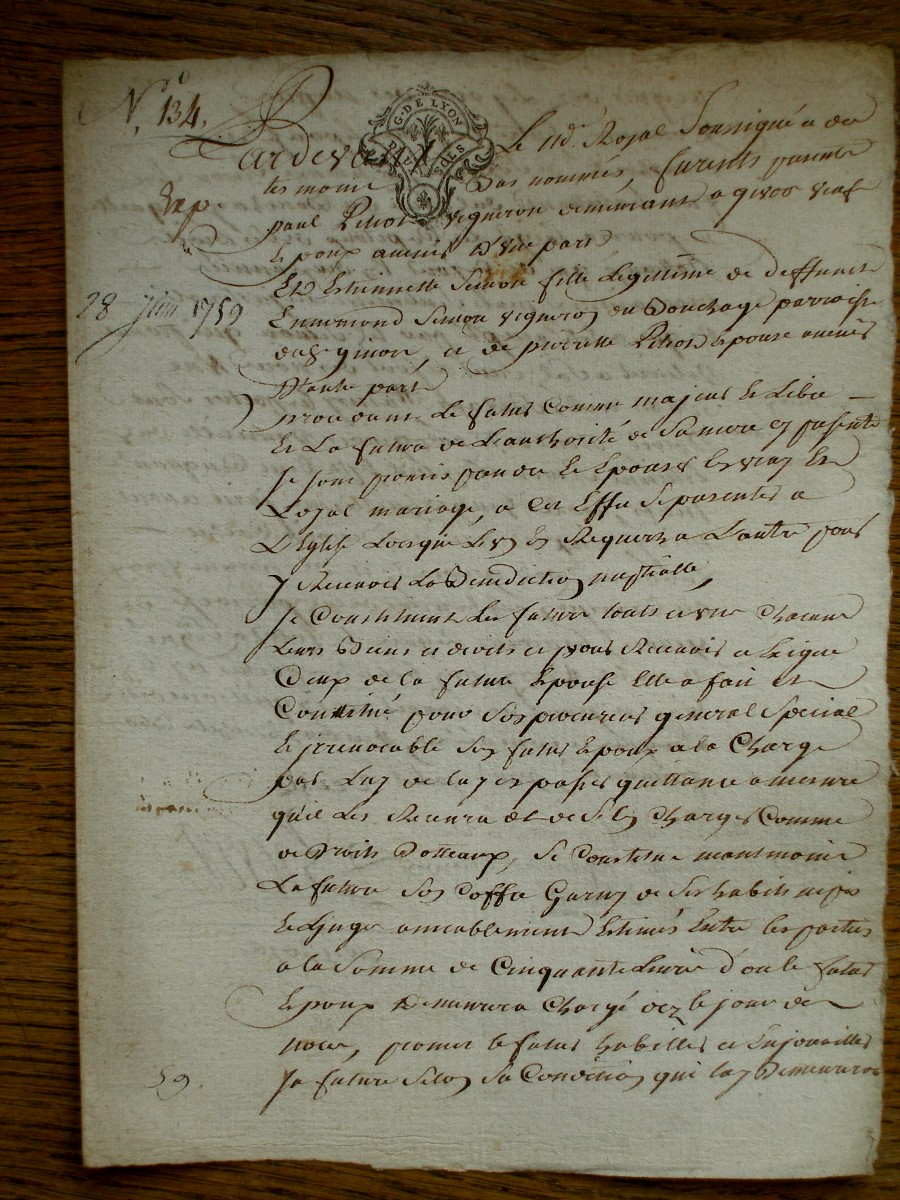 N.º 134.
G. DE LYON
DEUX SOLS
Pardevant Le Nre Royal Soussigné et des
tesmoins bas nommés, furents presents
paul Pitiot vigneron demeurant a givors veuf
Epoux avenir D'une part
28 Juin 1759
Et Estiennette Simon fille Legittime de deffunct
Ennemond Simon vigneron du Bouchage parroisse
de et de pierrette Pitiot Epouse avenir
D'autre part
procedant Le futur comme majeur Et Libre
Et La future de Lauthorité de Sa mere cy presente
Se sont promis prendre Et Epouser En vray Et
Loyal mariage, a cet Effet Se presenter a
L'Eglise Lorsque L'un En Requerra L'autre pour
y Recevoir La Benediction nuptialle,
Se Constituent Les futurs touts et un Chacuns
Leurs Biens et droits et pour Recevoir et Exiger
Ceux de la future Epouse Elle a fait Et
Constitué pour Son procureur general Special
Et jrrevocable Son futur Epoux a la Charge
par Luy de luy en passer quittance a mesure
qu'il Les Recevra et de S'En Charger Comme
de Droits Dotteaux, Se Constitue mesmement
La future Son Coffre Garny de Ses habits nipes
Et Linge amiablement Estimés Entre les parties
a la Somme de Cinquante Livres d'ou le futur
Epoux Demeurera Chargé dez le jour des
noces, promet le futur habiller et Enjoueiller
Sa future Selon Sa Condition qui luy Demeurera
59.